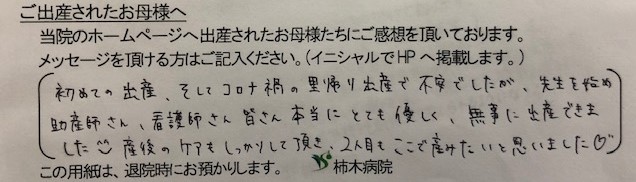 ご出産されたお母様へ
当院のホームページへ出産されたお母様たちにご感想を頂いております。
メッセージを頂ける方はご記入ください。（イニシャルでHPへ掲載します。）
初めての出産、そしてコロナ禍の里帰り出産で不安でしたが、先生を始め
助産師さん、看護師さん皆さん本当にとても優しく、無事に出産できま
した 産後のケアもしっかりして頂き、2人目もここで産みたいと思いました♡
この用紙は、退院時にお預かりします。 柿木病院